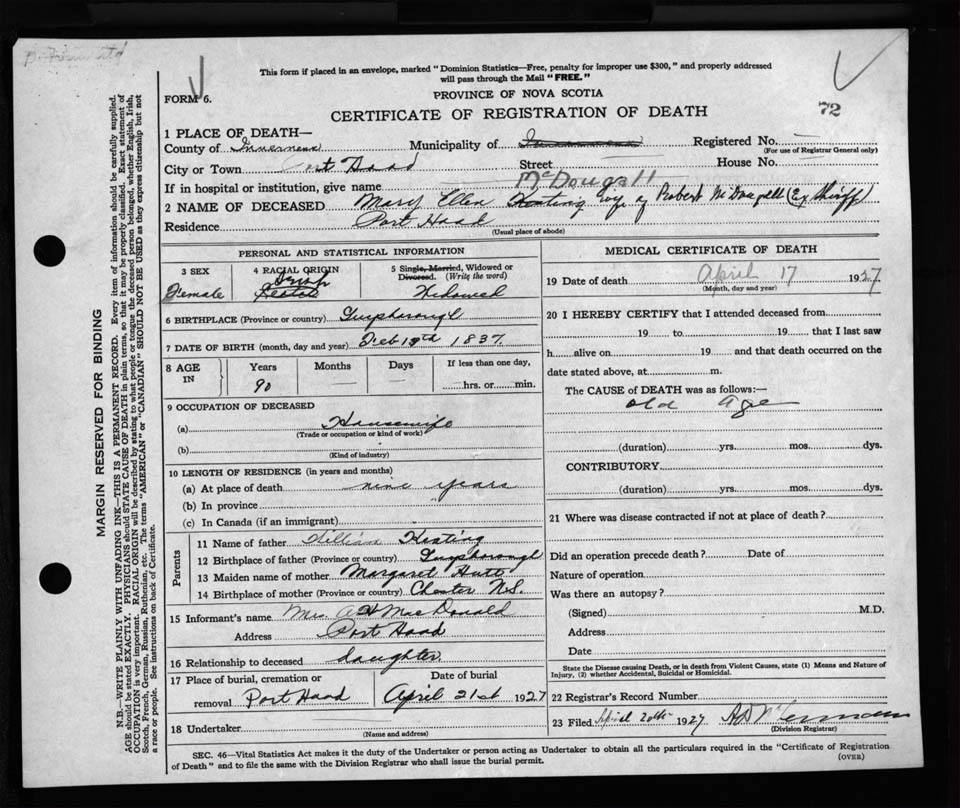 This form if placed in an envelope, marked "Dominion Statistics—Free, penalty for improper use $300," and properly addressed
will pass through the Mail "FREE."
FORM 6.
PROVINCE OF NOVA SCOTIA
72
CERTIFICATE OF REGISTRATION OF DEATH
1 PLACE OF DEATH—
County of Inverness Municipality of Registered No.
(For use of Registrar General only)
City or Town Port Hood Street House No.
If in hospital or institution, give name
McDougall
2 NAME OF DECEASED Mary Ellen Keating Wife of Robert McDougall (Ex Shiriff)
Residence Port Hood
(Usual place of abode)
PERSONAL AND STATISTICAL INFORMATION
3 SEX
Female
4 RACIAL ORIGIN
Irish
Scotch
5 Single, Married, Widowed or
Divorced. (Write the word)
Widowed
6 BIRTHPLACE (Province or country) Guysborough
7 DATE OF BIRTH (month, day and year) Feb 13th 1837
8 AGE
IN
Years
90
Months
Days
If less than one day,
hrs. or min.
9 OCCUPATION OF DECEASED
(a) Housewife
(Trade or occupation or kind of work)
(b)
(Kind of industry)
10 LENGTH OF RESIDENCE (in years and months)
(a) At place of death nine years
(b) In province
(c) In Canada (if an immigrant)
Parents
11 Name of father William Keating
12 Birthplace of father (Province or country) Guysborough
13 Maiden name of mother Margaret Hutt
14 Birthplace of mother (Province or country) Chester N.S.
15 Informant's name Mrs. A H MacDonald
Address Port Hood
16 Relationship to deceased daughter
17 Place of burial, cremation or
removal Port Hood
Date of burial
April 21st 1927
18 Undertaker
(Name and address)
MEDICAL CERTIFICATE OF DEATH
19 Date of death April 17 1927
(Month, day and year)
20 I HEREBY CERTIFY that I attended deceased from
19 to 19 that I last saw
h alive on 19 and that death occurred on the
date stated above, at m.
The CAUSE of DEATH was as follows:—
old age
(duration) yrs. mos. dys.
CONTRIBUTORY
(duration) yrs. mos. dys.
21 Where was disease contracted if not at place of death?
Did an operation precede death? Date of
Nature of operation
Was there an autopsy?
(Signed) M.D.
Address
Date
State the Disease causing Death, or in death from Violent Causes, state (1) Means and Nature of
Injury, (2) whether Accidental, Suicidal or Homicidal.
22 Registrar's Record Number
23 Filed April 20th 1927
(Division Registrar)
SEC. 46—Vital Statistics Act makes it the duty of the Undertaker or person acting as Undertaker to obtain all the particulars required in the "Certificate of Registration
of Death" and to file the same with the Division Registrar who shall issue the burial permit.
(OVER)
MARGIN RESERVED FOR BINDING
N.B.—WRITE PLAINLY WITH UNFADING INK—THIS IS A PERMANENT RECORD. Every item of information should be carefully supplied.
AGE should be stated EXACTLY. PHYSICIANS should STATE CAUSE OF DEATH in plain terms, so that it may be properly classified. Exact statement of
OCCUPATION is very important. RACIAL ORIGIN will be described by stating to what people or tongue the deceased person belonged, whether English, Irish,
Scotch, French, German, Russian, Ruthenian, etc. The terms "AMERICAN" or "CANADIAN" SHOULD NOT BE USED as they express citizenship but not
a race or people. See instructions on back of Certificate.